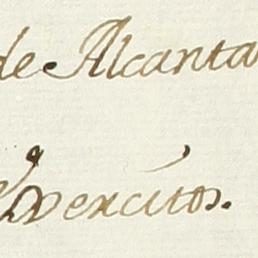 de Alcanta
exercitos.